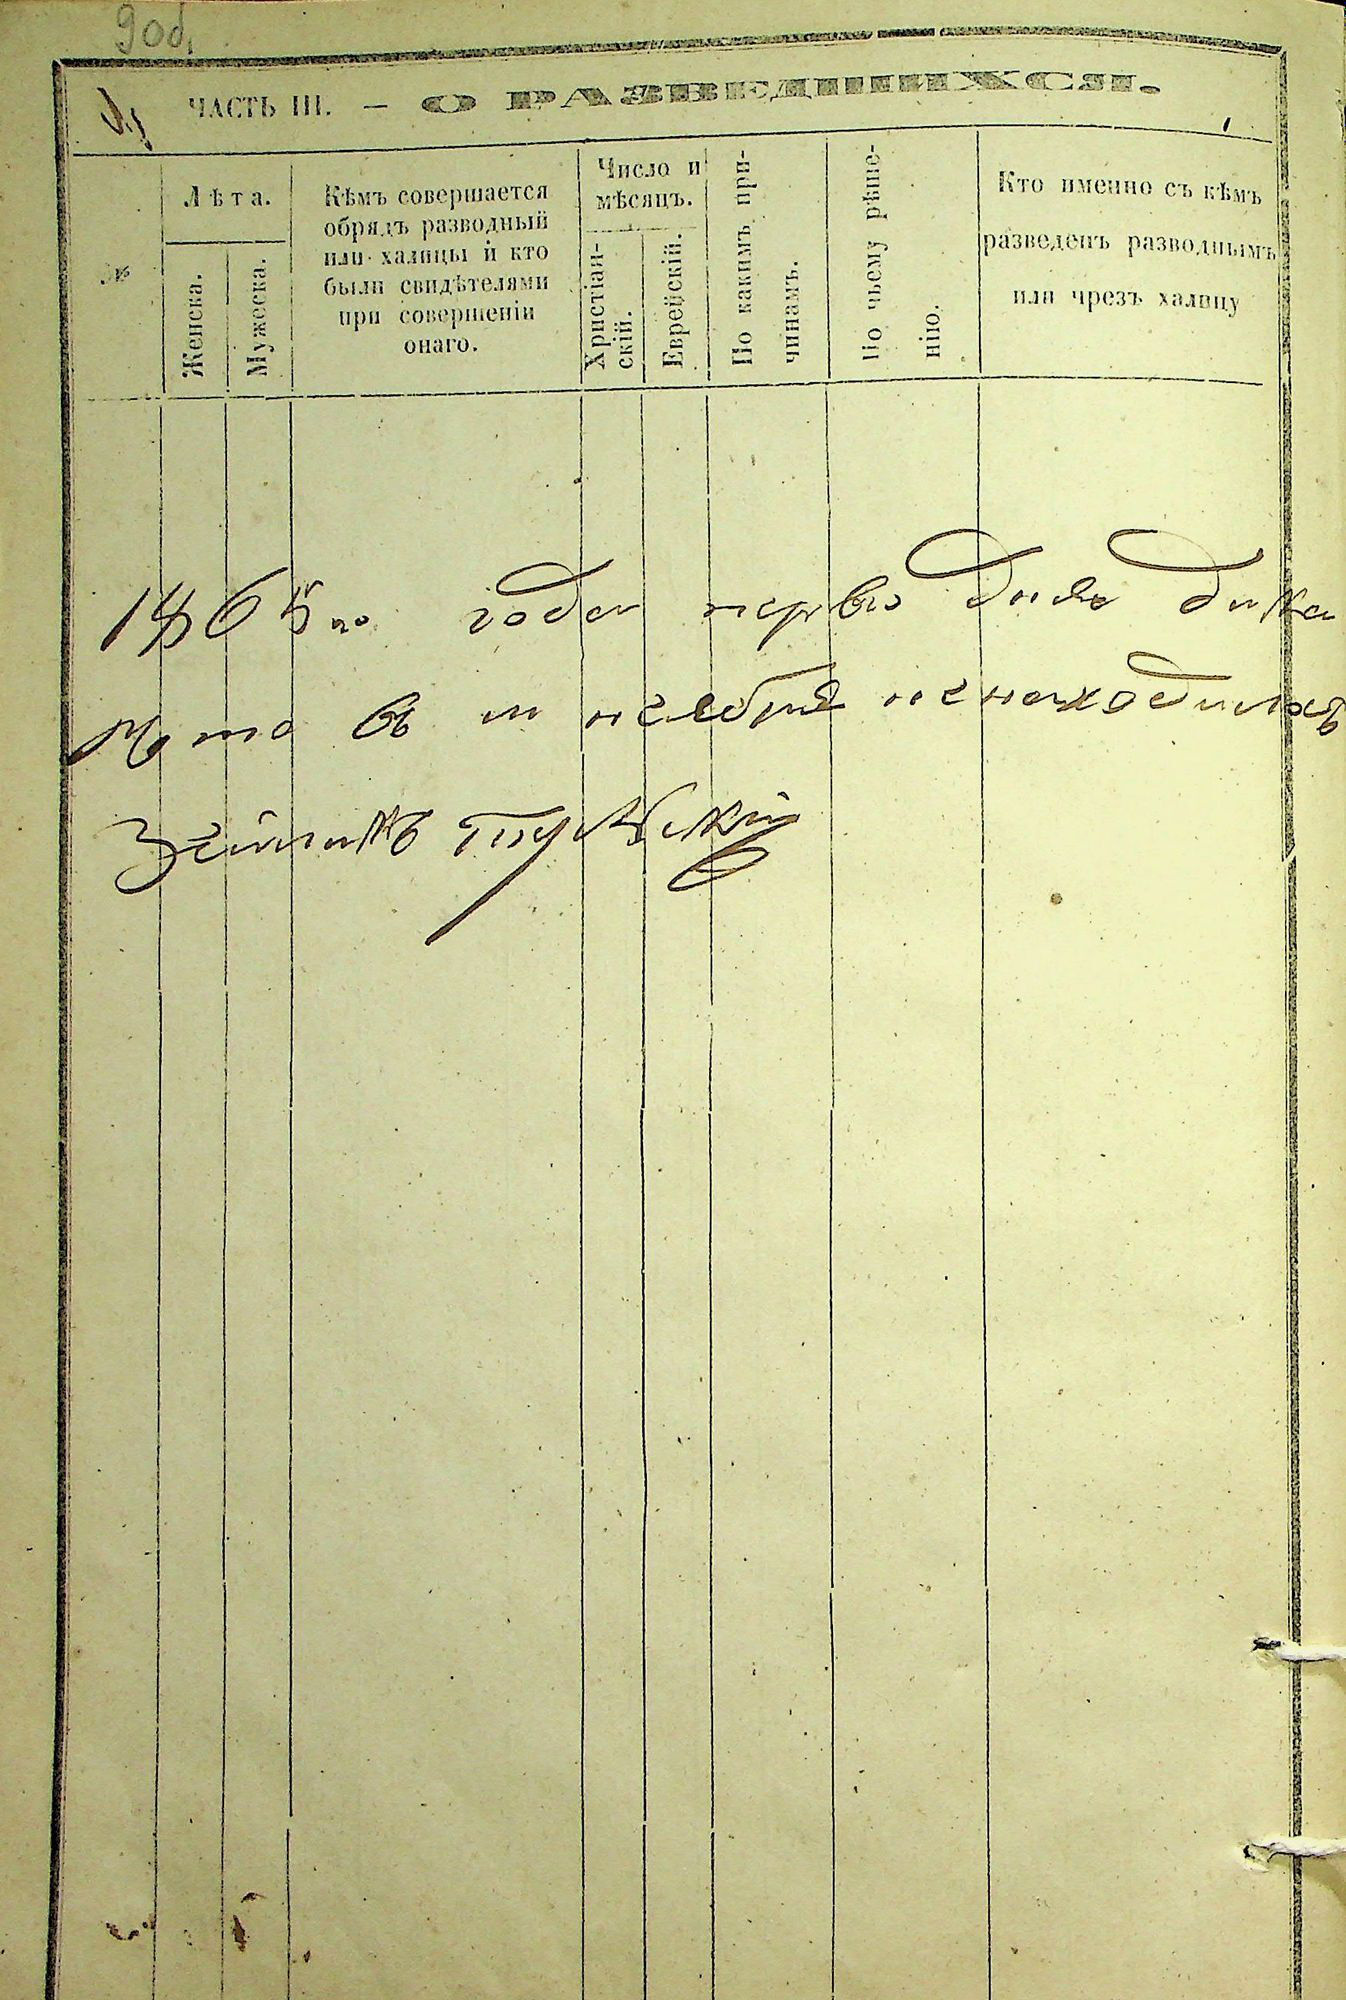 9 об.
ЧАСТЬ III. — О РАЗВЕДШИХСЯ.
№
Лѣта.
Женска.
Мужеска.
Кѣмъ совершается
обрядъ разводный
или халицы и кто
были свидѣтелями
при совершеніи
онаго.
Число и
мѣсяцъ.
Христіан-
скій.
Еврейскій.
По какимъ при-
чинамъ.
По чьему рѣше-
нію.
Кто именно съ кѣмъ
разведенъ разводнымъ
или чрезъ халицу
1865го года перво дня дика
что въ ноября не находилось